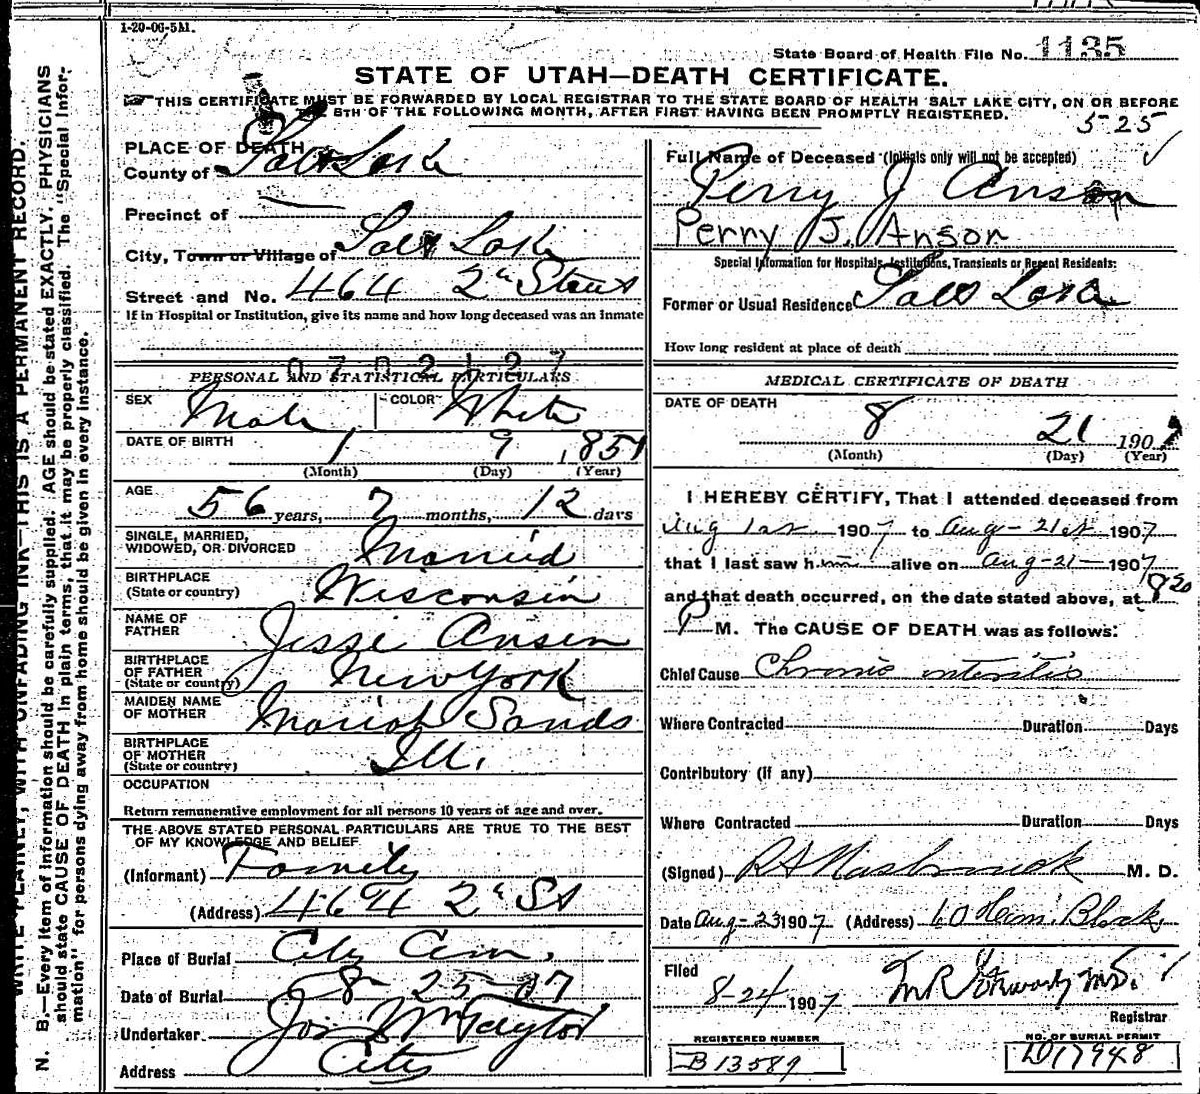 1-20-06-5M.
State Board of Health File No. 1135
STATE OF UTAH—DEATH CERTIFICATE.
THIS CERTIFICATE MUST BE FORWARDED BY LOCAL REGISTRAR TO THE STATE BOARD OF HEALTH SALT LAKE CITY, ON OR BEFORE
THE 8TH OF THE FOLLOWING MONTH, AFTER FIRST HAVING BEEN PROMPTLY REGISTERED.
5-25
PLACE OF DEATH
County of Salt Lake
Precinct of
City, Town or Village of Salt Lake
Street and No. 464 2nd Street
If in Hospital or Institution, give its name and how long deceased was an inmate
Full Name of Deceased (Initials only will not be accepted)
Perry J Anson
Perry J. Anson
Special Information for Hospitals, Institutions, Transients or Recent Residents:
Former or Usual Residence Salt Lake
How long resident at place of death
0702127
PERSONAL AND STATISTICAL PARTICULARS
SEX Male COLOR White
DATE OF BIRTH 1 9 1851
(Month) (Day) (Year)
AGE
56 years, 7 months, 12 days
SINGLE, MARRIED,
WIDOWED, OR DIVORCED Married
BIRTHPLACE
(State or country) Wisconsin
NAME OF
FATHER Jessie Ansen
BIRTHPLACE
OF FATHER
(State or country) New York
MAIDEN NAME
OF MOTHER Mariah Sands
BIRTHPLACE
OF MOTHER
(State or country) Ill.
OCCUPATION
Return remunerative employment for all persons 10 years of age and over.
THE ABOVE STATED PERSONAL PARTICULARS ARE TRUE TO THE BEST
OF MY KNOWLEDGE AND BELIEF
(Informant) Family
(Address) 464 2nd St
Place of Burial City Cem.
Date of Burial 8 25-07
Undertaker Jos Wm Taylor
Address City
MEDICAL CERTIFICATE OF DEATH
DATE OF DEATH
8 21 1907
(Month) (Day) (Year)
I HEREBY CERTIFY, That I attended deceased from
Aug 1st 1907 to Aug-21st 1907
that I last saw him alive on Aug-21-1907
and that death occurred, on the date stated above, at 8 20
P M. The CAUSE OF DEATH was as follows:
Chief Cause Chronic enteritis
Where Contracted Duration Days
Contributory (if any)
Where Contracted Duration Days
(Signed) M. D.
Date Aug-23 1907 (Address) 60 Block
Filed
8-24 1907
Registrar
REGISTERED NUMBER
B13589
NO. OF BURIAL PERMIT
D17948
N. B.—Every item of information should be carefully supplied. AGE should be stated EXACTLY. PHYSICIANS
should state CAUSE OF DEATH in plain terms, that it may be properly classified. The "Special Infor-
mation" for persons dying away from home should be given in every instance.
WRITE PLAINLY, WITH UNFADING INK—THIS IS A PERMANENT RECORD.